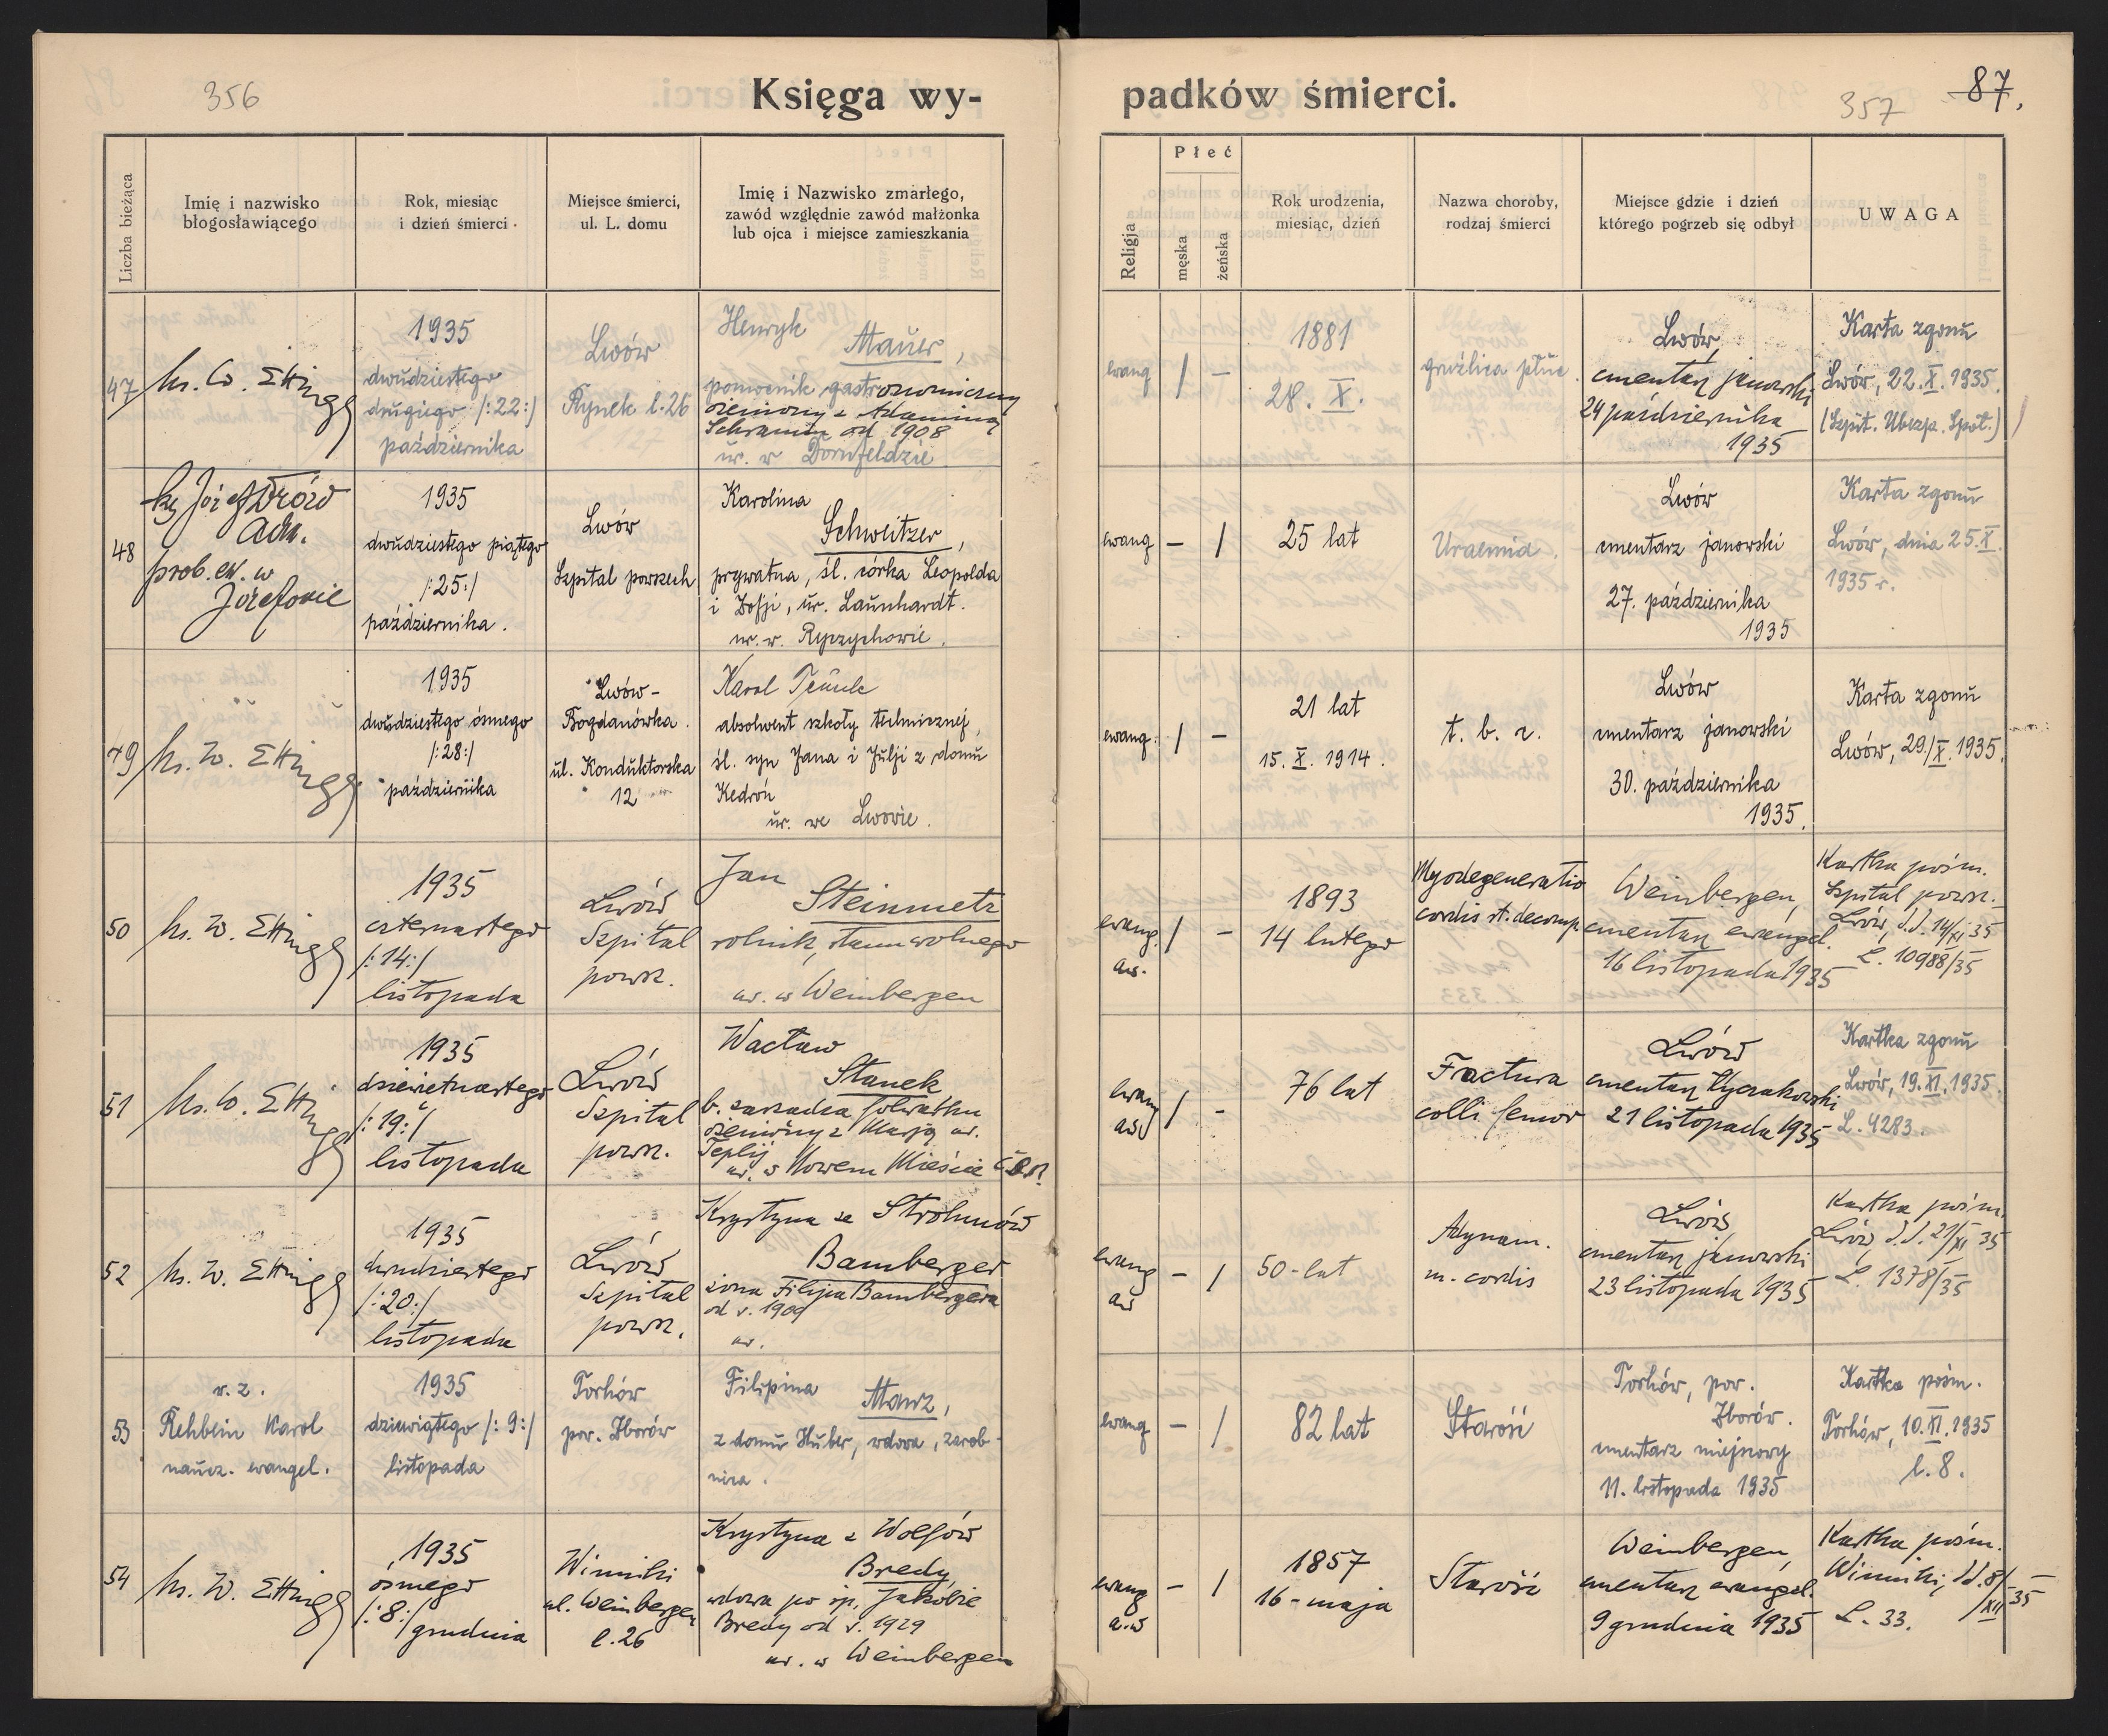 356
Księga wy-
padków śmierci.
357
87.
Liczba bieżąca
Imię i nazwisko
błogosławiącego
Rok, miesiąc
i dzień śmierci.
Miejsce śmierci,
ul. L. domu
Imię i Nazwisko zmarłego,
zawód względnie zawód małżonka
lub ojca i miejsce zamieszkania
Religja
Płeć
męska
żeńska
Rok urodzenia,
miesiąc, dzień
Nazwa choroby,
rodzaj śmierci
Miejsce gdzie i dzień
którego pogrzeb się odbył
UWAGA
47
1935
dwudziestego
drugiego /:22:/
października
Lwów
Rynek l. 26
Henryk
Mauer,
pomocnik gastronomiczny
ożeniony z
od 1908
ur. w Dornfeldzie
ewang
/
-
1881
28. X.
gruźlica płuc.
Lwów,
cmentarz janowski
24 października
1935
Karta zgonu
Lwów, 22.X.1935.
(Szpit. Ubezp. Społ.)
48
ks Józef Drózd
Adm.
prob. ew. w
Józefowie
1935
dwudziestego piątego
/:25:/
października.
Lwów
Szpital powszech
Karolina
Schweitzer,
prywatna, śl. córka Leopolda
i Zofji, ur. Launhardt.
ur. w. Rypzychowie.
ewang
-
/
25 lat
Uraemia.
Lwów
cmentarz janowski
27. października
1935
Karta zgonu
Lwów, dnia 25.X.
1935 r.
49
1935
dwudziestego ósmego
/:28:/
październiika
Lwów-
Bogdanówka.
ul. Konduktorska
12
Karol
absolwent szkoły technicznej,
śl. syn Jana i Julji z domu
Kedroń
ur. we Lwowie.
ewang.
/
-
21 lat
15. X. 1914.
t. b. c.
Lwów
cmentarz janowski
30. października
1935.
Karta zgonu
Lwów, 29./X.1935.
50
1935
czternastego
/:14:/
listopada
Lwów
Szpital
powsz.
Jan
Steinmetz
rolnik, stanu wolnego
ur. w Weinbergen
ewang.
aw.
/
-
1893
14 lutego
Myodegeneratio
cordis st. decomp.
Weinbergen,
cmentarz ewangel.
16 listopada 1935
Kartka pośm.
Szpital powsz.
Lwów, d.d. 14/XI 35
L. 10988/35
51
1935
dziewiętnastego
/:19:/
listopada
Lwów
Szpital
powsz.
Wacław
Stanek
b. zarządca folwarku
ożeniony z Marją ur.
Teplij
ur. w Nowem Mieście
ewang
aw
/
-
76 lat
Fractura
colli femor
Lwów
cmentarz Łyczakowski
21 listopada 1935
Kartka zgonu
Lwów, 19.XI.1935.
L. 4283.
52
1935
dwudziestego
/:20:/
listopada
Lwów
Szpital
powsz.
Krystyna ze Strohmów
Bamberger
żona Filipa Bambergera
od r. 1909
ur.
ewang
aw
-
/
50-lat
Adynam.
m. cordis
Lwów
cmentarz janowski
23 listopada 1935
Kartka pośm.
Lwów d.d. 21/XI 35
L. 1378/35
53
w. z.
Rehbein Karol
naucz. ewangel.
1935
dziewiątego /:9:/
listopada
Torhów
pow. Zborów
Filipina
Manz,
z domu Huber, wdowa, zarob-
nica.
ewang
-
/
82 lat
Starość
Torhów, pow.
Zborów.
cmentarz miejscowy
11. listopada 1935
Kartka pośm.
Torhów, 10.XI.1935
l. 8.
54
1935
ósmego
/:8:/
grudnia
Winniki
ul. Weinbergen
l. 26
Krystyna z Wolfów
Bredy
wdowa po śp. Jakóbie
Bredy od r. 1929
ur. w Weinbergen
ewang
a.w
-
/
1857
16-maja
Starość
Weinbergen,
cmentarz ewangel.
9 grudnia 1935
Kartka pośm.
Winniki, d.d. 8/XII 35
L. 33.